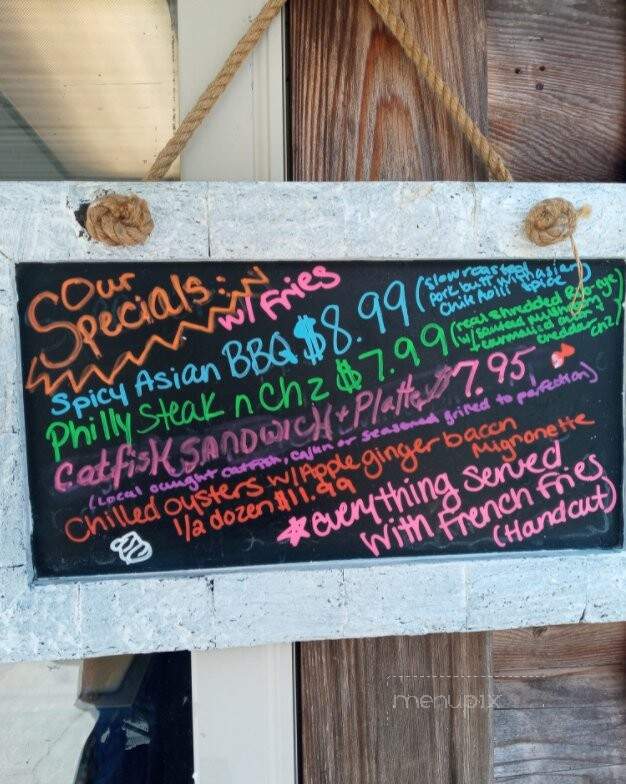 Our
Specials:
w/ Fries
Spicy Asian BBQ $8.99 (slow roasted
pork butt with asian
chile Aoli spice)
Philly Steak n chz $7.99 (real shredded Rib eye
w/ sauteed
caramelized onion
cheddar chz)
catfish SANDWICH + Platter $7.95
(Local caught catfish, cajun or seasoned grilled to perfection)
chilled oysters w/ Apple ginger bacon
Mignonette
1/2 dozen $11.99
*everything served
with french fries
(Hand cut)
menupix